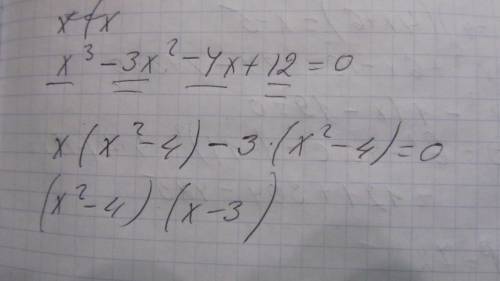 x³ - 3x² - 4x + 12 = 0
x(x² - 4) - 3·(x² - 4) = 0
(x² - 4) (x - 3)